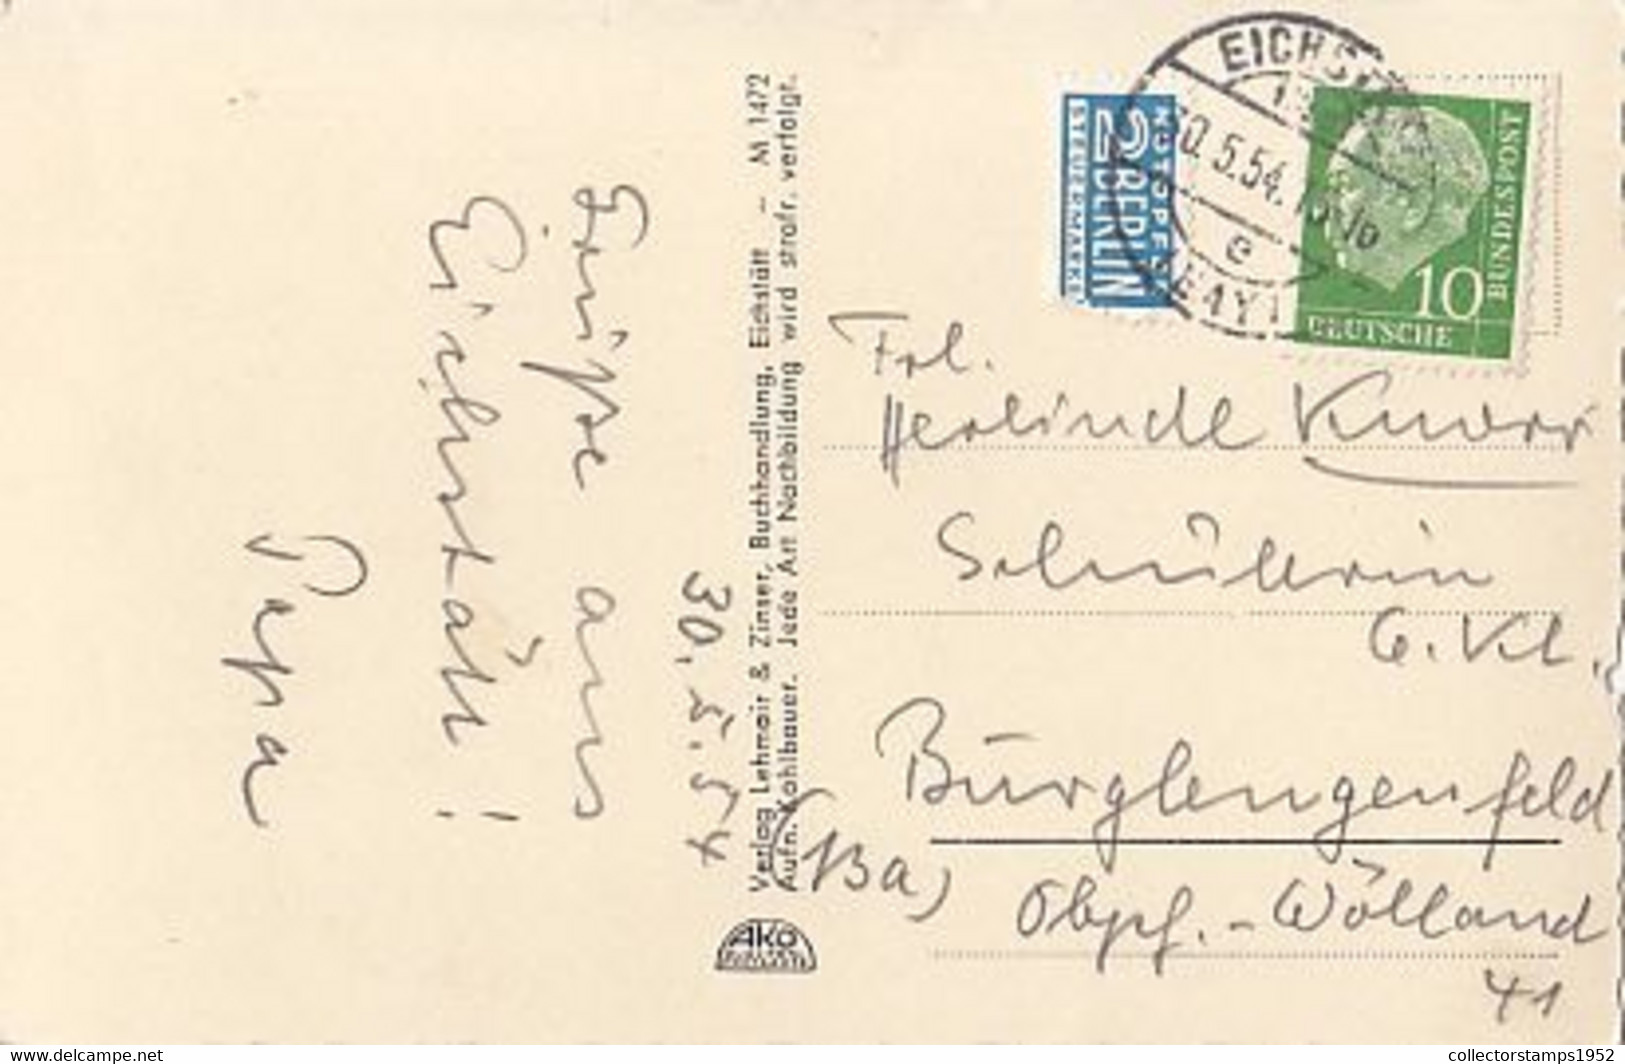 30.5.54
Grüße aus
Eichstätt!
Papa
Verlag Lehmair & Zinser, Buchhandlung, Eichstätt – M 1472
Aufn. Kohlbauer. Jede Art Nachbildung wird strafr. verfolgt.
AKO
NOTOPFER
2 BERLIN
STEUERMARKE
30.5.54.
e
10
DEUTSCHE
BUNDESPOST
Frl.
Herlinde Knorr
Schülerin
6. Kl.
Burglengenfeld
(13a)
Obpf. - Wölland
41
collectorstamps1952
www.delcampe.net